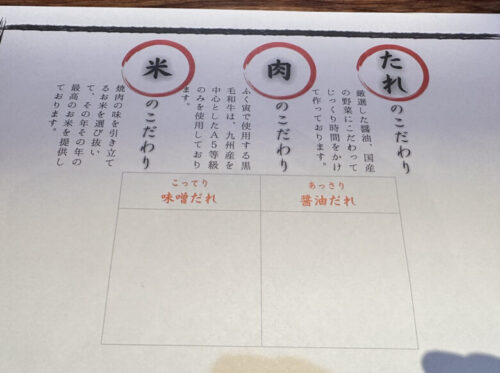 たれのこだわり
厳選した醤油、国産
の野菜にこだわって
じっくり時間をかけ
て作っております。
肉のこだわり
ふく寅で使用する黒
毛和牛は、九州産を
中心としたA5等級
のみを使用しており
ます。
米のこだわり
焼肉の味を引き立て
るお米を選び抜い
て、その年その年の
最高のお米を提供し
ております。
こってり
味噌だれ
あっさり
醬油だれ